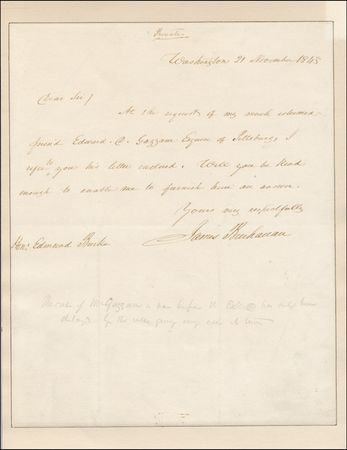 Private
Washington 21 November 1845
Dear Sir/
At the request of my much esteemed
friend Edward D. Gazzam Esquire of Pittsburg, I
refer to you his letter enclosed. Will you be kind
enough to enable me to furnish him an answer.
Yours very respectfully
James Buchanan
Hon: Edmund Burke
The case of Mr Gazzam is now before the has only been
delayed by the